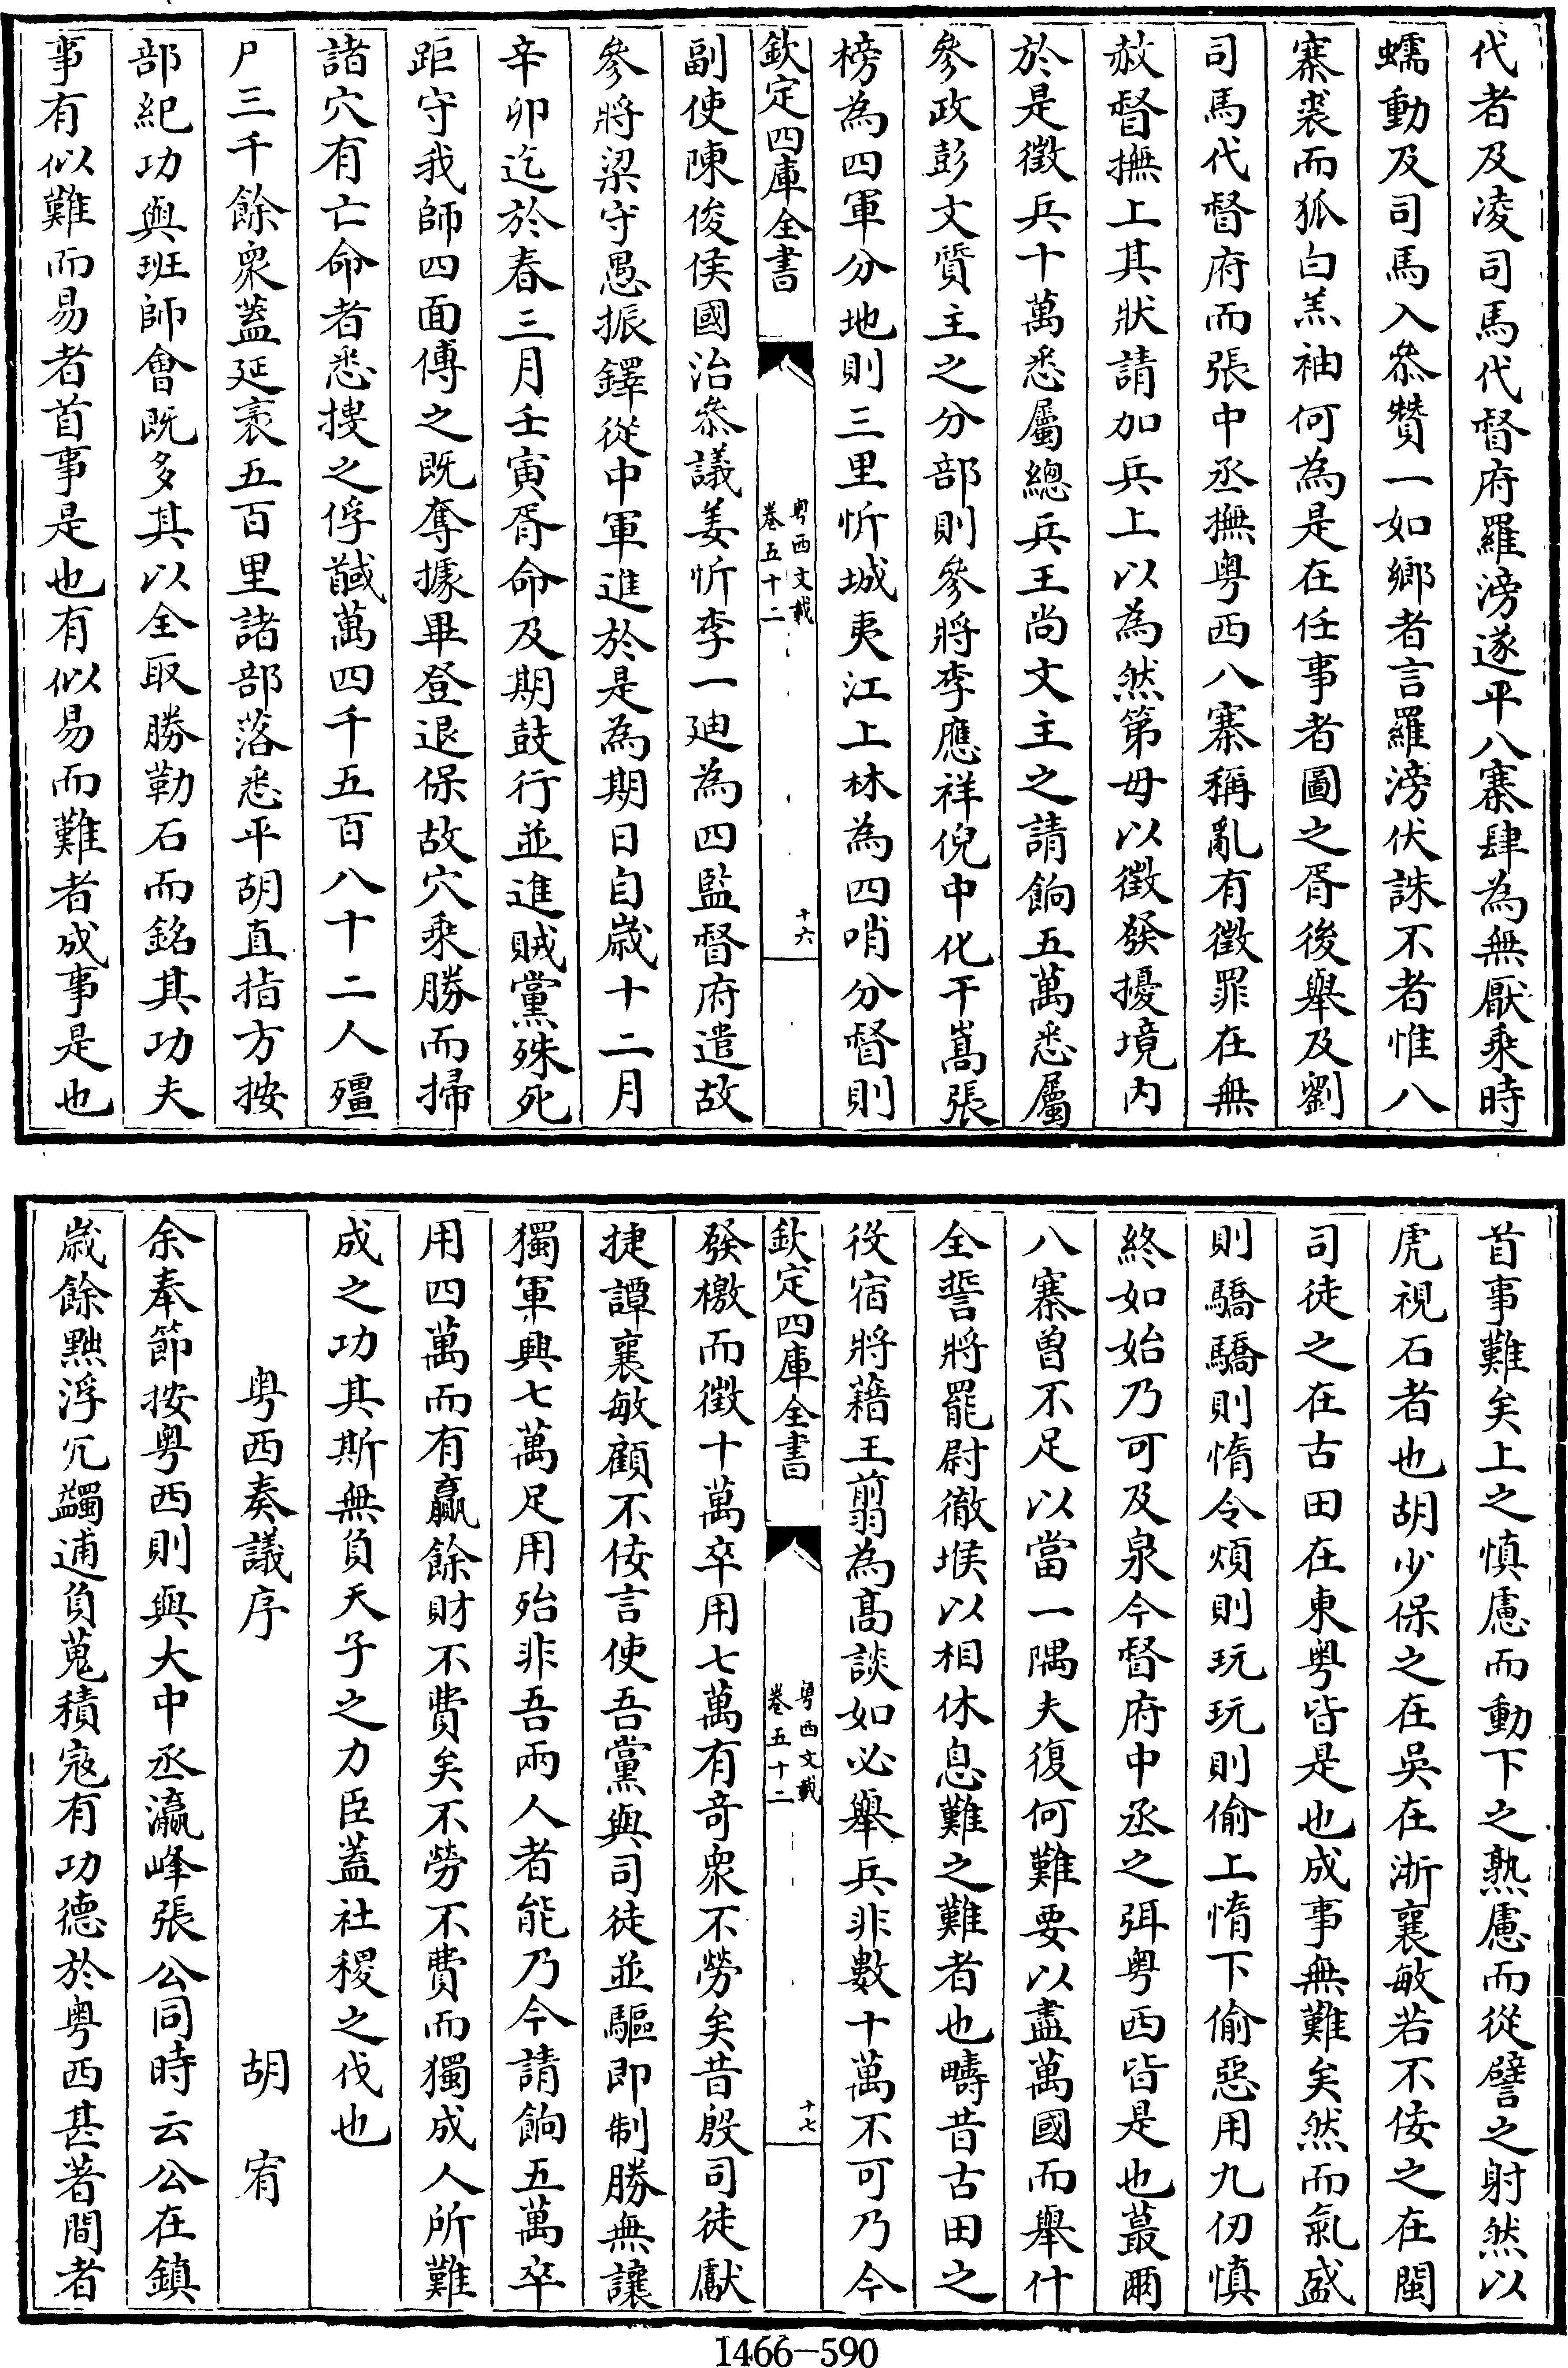 代者及凌司馬代督府羅滂遂平八寨肆為無厭乘時
蠕動及司馬入叅贊一如鄉者言羅滂伏誅不者惟八
寨裘而狐白羔袖何為是在任事者圖之胥後舉及劉
司馬代督府而張中丞撫粤西八寨稱亂有徵罪在無
赦督撫上其狀請加兵上以為然第毋以徵發擾境内
於是徵兵十萬悉屬總兵王尚文主之請餉五萬悉屬
參政彭文質主之分部則參將李應祥倪中化干嵩張
榜為四軍分地則三里忻城夷江上林為四哨分督則
欽定四庫全書
粤西文載
卷五十二
十六
副使陳俊侯國治叅議姜忻李一廸為四監督府遣故
參將梁守愚振鐸從中軍進於是為期日自嵗十二月
辛卯迄於春三月壬寅胥命及期鼓行並進賊黨殊死
距守我師四面傅之既奪據畢登退保故穴乘勝而掃
諸穴有亡命者悉搜之俘馘萬四千五百八十二人殭
尸三千餘衆蓋延袤五百里諸部落悉平胡直指方按
部紀功與班師會既多其以全取勝勒石而銘其功夫
事有似難而易者首事是也有似易而難者成事是也
首事難矣上之慎慮而動下之熟慮而從譬之射然以
虎視石者也胡少保之在吳在浙襄敏若不佞之在閩
司徒之在古田在東粤皆是也成事無難矣然而氣盛
則驕驕則惰令煩則玩玩則偷上惰下偷惡用九仞慎
終如始乃可及泉今督府中丞之弭粤西皆是也蕞爾
八寨曽不足以當一隅夫復何難要以盡萬國而舉什
全誓將罷尉徹堠以相休息難之難者也疇昔古田之
役宿將藉王翦為髙談如必舉兵非數十萬不可乃今
欽定四庫全書
粤西文載
卷五十二
十七
發檄而徵十萬卒用七萬有奇衆不勞矣昔殷司徒獻
捷譚襄敏顧不佞言使吾黨與司徒並驅即制勝無讓
獨軍興七萬足用殆非吾兩人者能乃今請餉五萬卒
用四萬而有贏餘財不費矣不勞不費而獨成人所難
成之功其斯無負天子之力臣蓋社稷之伐也
粤西奏議序　胡宥
余奉節按粤西則與大中丞瀛峰張公同時云公在鎮
嵗餘黜浮冗蠲逋負蒐積宼有功德於粤西甚著間者
1466—590